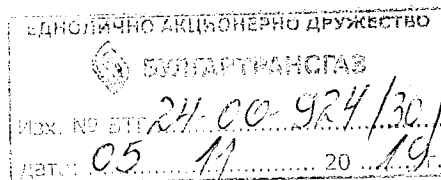 ЕДНОЛИЧНО АКЦИОНЕРНО ДРУЖЕСТВО
БУЛГАРТРАНСГАЗ
Изх. № БТГ 24-00-924/30/
дата: 05 11 20 19 г.